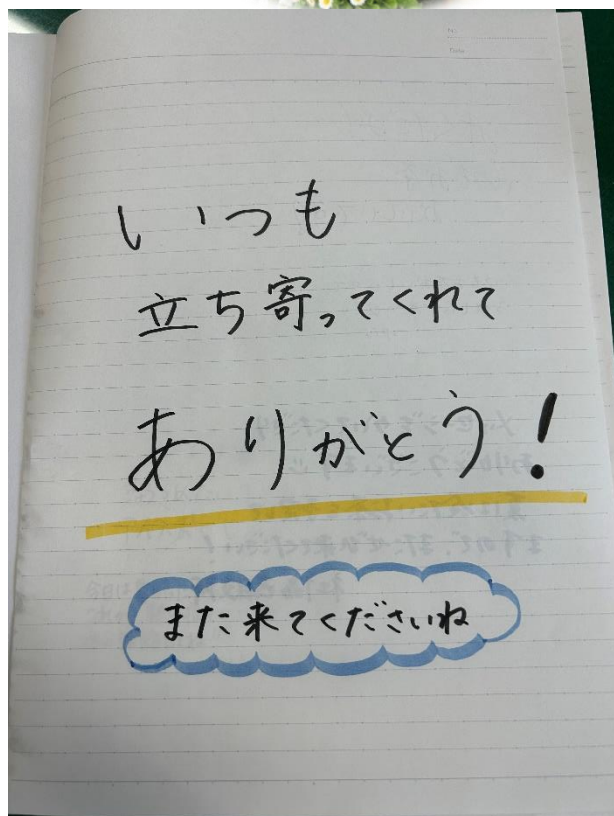 いつも
立ち寄ってくれて
ありがとう!
また来てくださいね